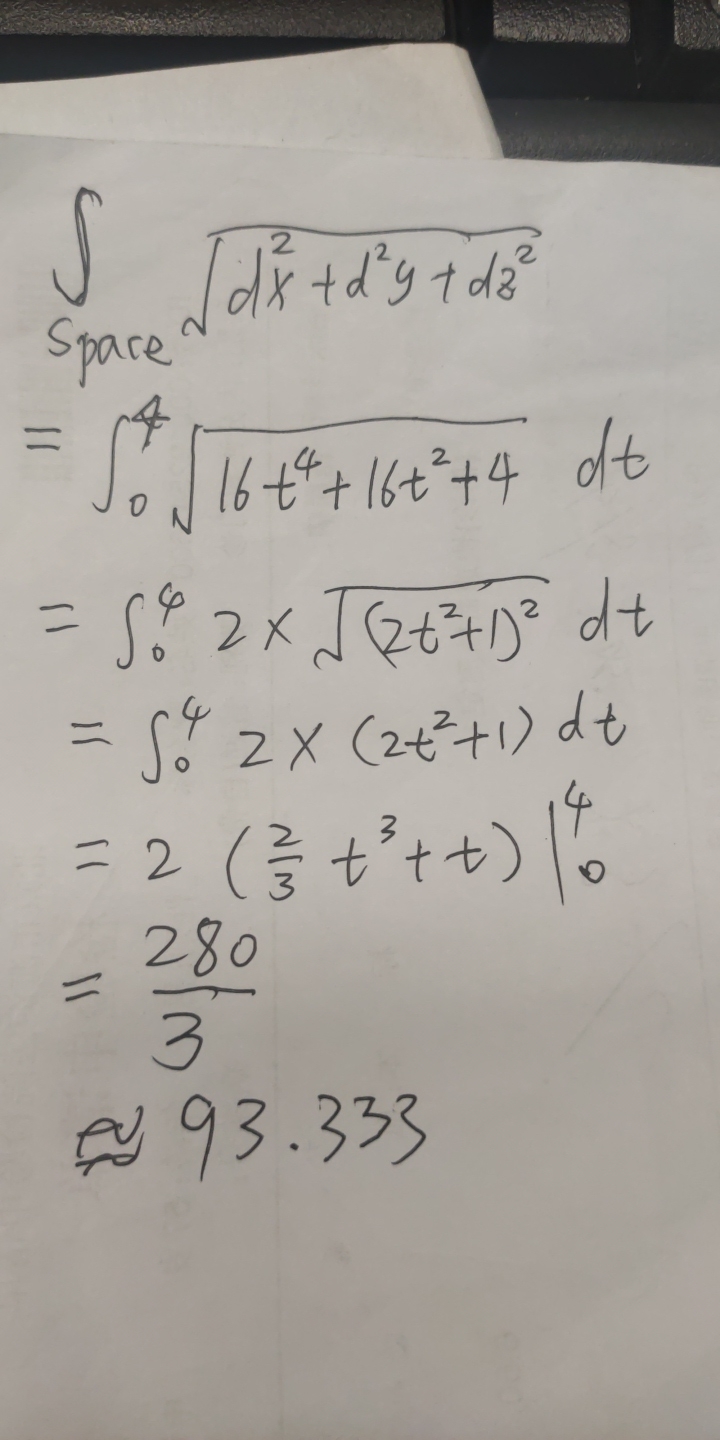 ∫ Space √(dx² + d²y + dz²)
= ∫₀⁴ √(16t⁴ + 16t² + 4) dt
= ∫₀⁴ 2 × √((2t² + 1)²) dt
= ∫₀⁴ 2 × (2t² + 1) dt
= 2 (2/3 t³ + t) |₀⁴
= 280/3
≈ 93.333